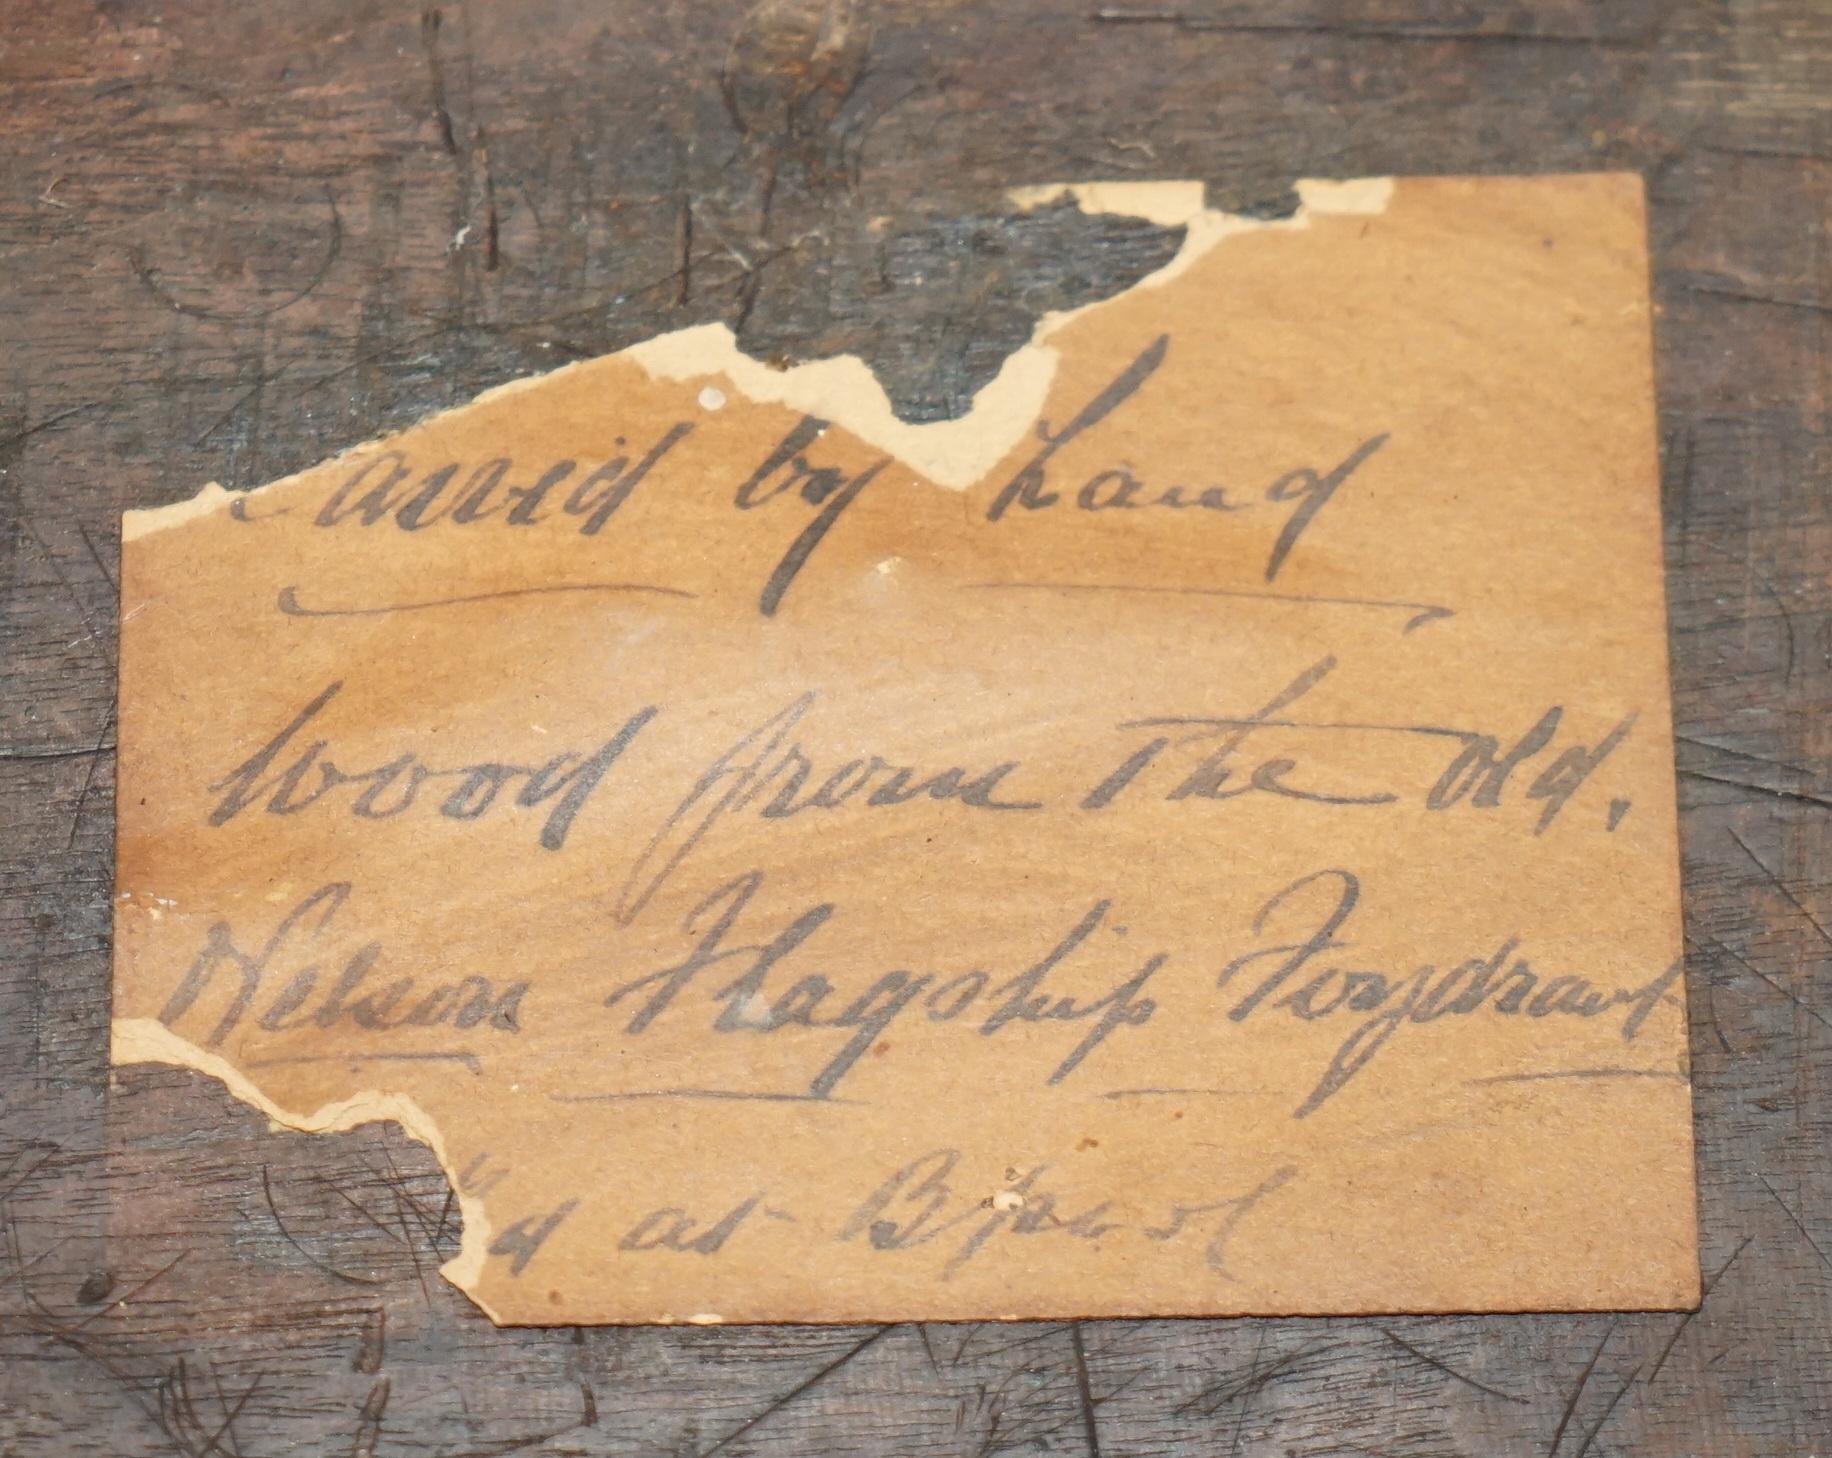 Carved by hand
Wood from the Old.
Nelson Flagship Foydrant
d at B'pool